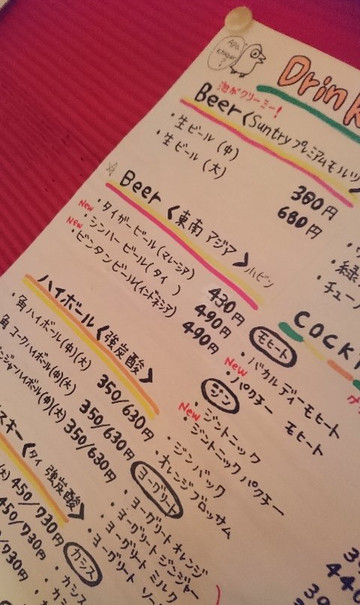 Drin
泡がクリーミー!
Beer〈Suntryプレミアムモルツ
・生ビール(中) 380円
・生ビール(大) 680円
Beer〈東南アジア〉
New・タイガービール(マレーシア) 430円
New・シンハービール(タイ) 490円
・ビンタンビール(インドネシア) 490円
ハイボール〈強炭酸〉
・角ハイボール(中)(大) 350/630円
角コークハイボール(中)(大) 350/630円
ンジャーハイボール(中)(大) 350/630円
スキー〈タイ 強炭酸〉
(大) 450/730円
450/730円
緑
チュー
COCK
モヒート
・バカルディーモヒート
New パクチー モヒート
ジン
・ジントニック
New・ジントニック パクチー
・ジンバック
・オレンジブロッサム
ヨーグリート
・ヨーグリート オレンジ
・ヨーグリート ジンジャー
・ヨーグリート ミルク
・ヨーグリート ソー
カシス
・カシス